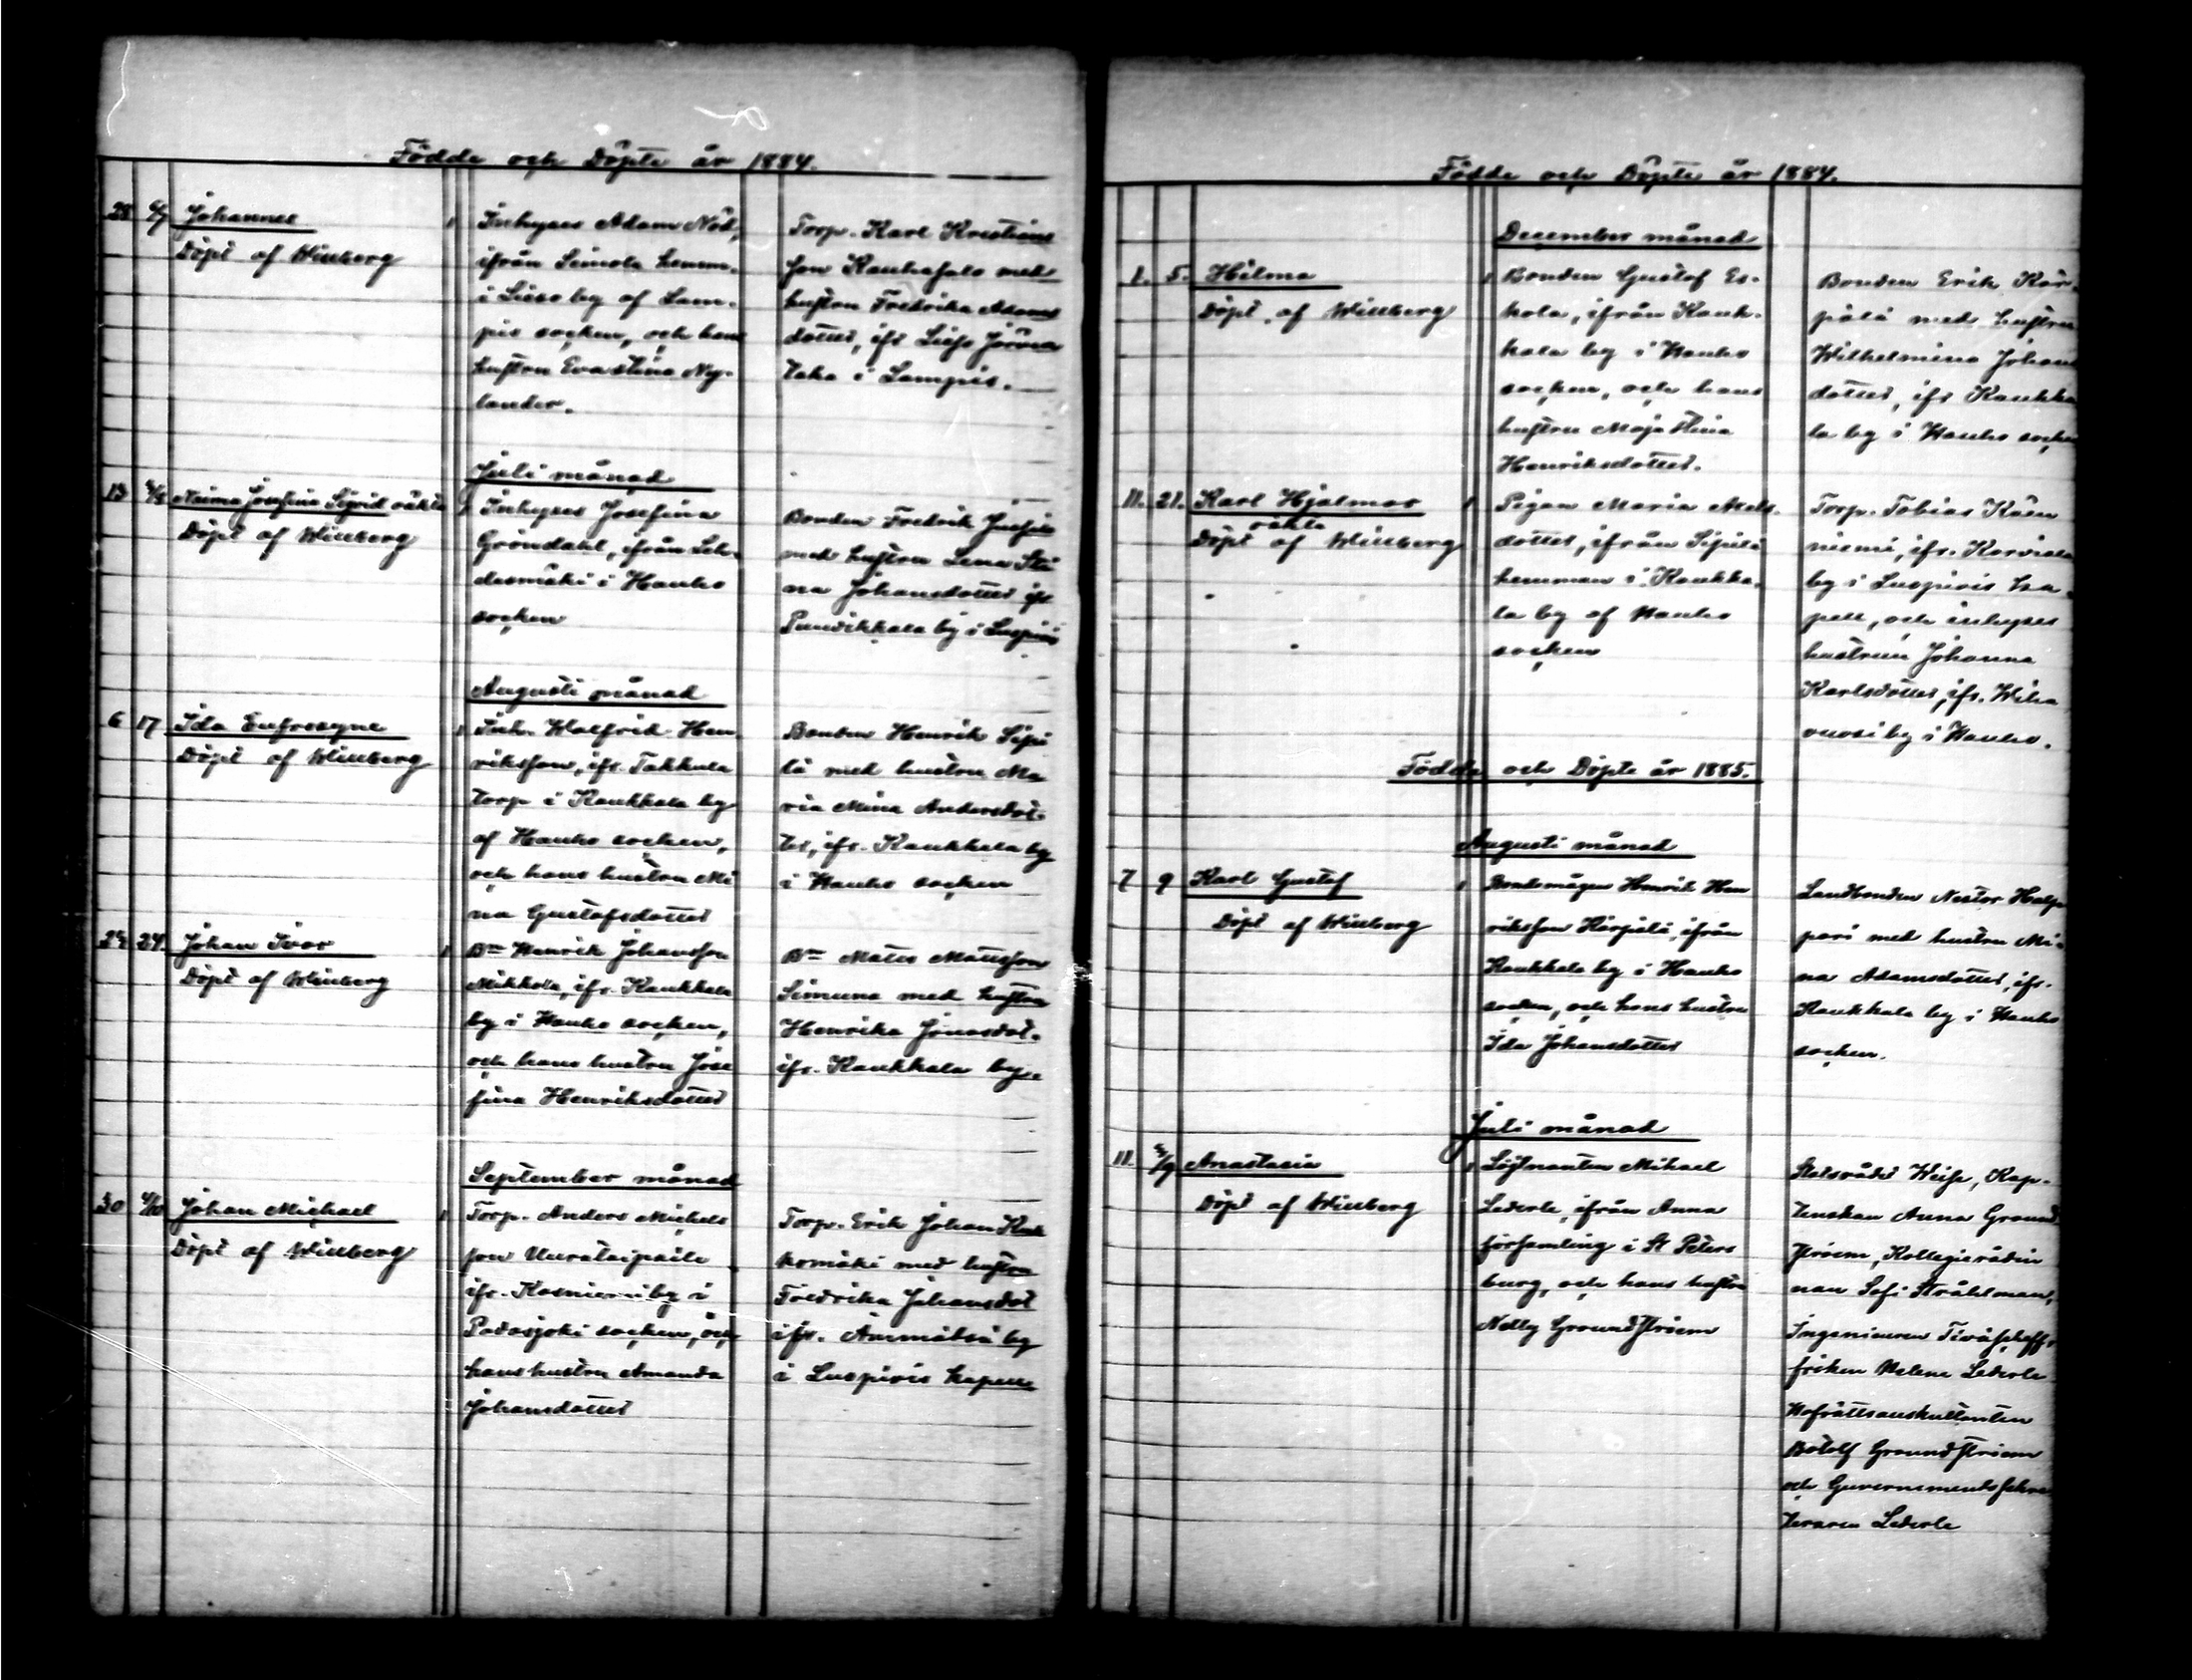 Födde och Döpte år 1884.
28 6/7 Johannes
Döpt af Willberg
1 Inhyses Adam Nöd,
ifrån Seimola hemm.
i Lieso by af Lam-
pis socken, och hans
hustru Eva Stina Ny-
lander.
Torp. Karl Kristians
son Kauhasalo med
hustru Fredrika Adams
dotter, ifr Lieso Järven
taka i Lampis.
Juli månad
13 Naima Josefina Sigrid oäkta
Döpt af Willberg
Inhyses Josefina
Gröndahl, ifrån Leh-
desmäki i Hauho
socken
Bonden Fredrik Jussila
med hustru Lena Sti
na Johansdotter ifr
Pundikkala by i Luopiois
Augusti månad
6 17 Ida Eufrosyne
Döpt af Willberg
1 Inh. Walfrid Hen
riksson, ifr. Takkula
torp i Kaukkala by
af Hauho socken,
och hans hustru Mi
na Gustafsdotter
Bonden Henrik Sipi
lä med hustru Ma
ria Mina Andersdot-
ter, ifr. Kaukkala by
i Hauho socken
24 24. Johan Ivar
Döpt af Willberg
1 Bn Henrik Johansson
Mikkola, ifr. Kaukkala
by i Hauho socken,
och hans hustru Jose
fina Henriksdotter
Bn Matts Mattsson
Simuna med hustru
Henrika Jonasdot.
ifr. Kaukkala by.
September månad
30 4/10 Johan Michael
Döpt af Willberg
1 Torp. Anders Michels
son
ifr. Kosniemi by i
Padasjoki socken, och
hans hustru Amanda
Johansdotter
Torp. Erik Johan
komäki med hustru
Fredrika Johansdot
ifr. Ämmätsä by
i Luopiois kapell
Födde och Döpte år 1884.
December månad
1. 5. Hilma
Döpt af Willberg
1 Bonden Gustaf Es-
kola, ifrån Kauk-
kala by i Hauho
socken, och hans
hustru Maja Stina
Henriksdotter.
Bonden Erik Kär-
pälä med hustru
Wilhelmina Johans
dotter, ifr Kaukka
la by i Hauho socken
11. 21. Karl Hjalmar
oäkta
Döpt af Willberg
1 Pigan Maria Mats-
dotter, ifrån Sipilä
hemman i Kaukka-
la by af Hauho
socken
Torp. Tobias Käen
niemi, ifr. Korviala
by i Luopiois ka-
pell, och inhyses
hustrun Johanna
Karlsdotter, ifr. Wiha
vuosi by i Hauho.
Födde och Döpte år 1885.
Augusti månad
7 9 Karl Gustaf
Döpt af Willberg
1 Bondemågen Henrik Hen
riksson Kärpälä, ifrån
Kaukkala by i Hauho
socken, och hans hustru
Ida Johansdotter
Landbonden Nestor Halp
pari med hustru Mi-
na Adamsdotter, ifr.
Kaukkala by i Hauho
socken.
Juli månad
11. 5/9 Anastasia
Döpt af Willberg
1 Löjtnanten Mikael
Lederle, ifrån Anna
församling i St Peters
burg, och hans hustru
Nelly Groundstroem
Statsrådet Weise, Kap-
tenskan Anna Ground
stroem, Kollegierådin
nan Sofi Stråhlman,
Ingenieuren
fröken Helene Lederle
Hofrättsauskultanten
Botolf Groundstroem
och Guvernementssekre
teraren Lederle